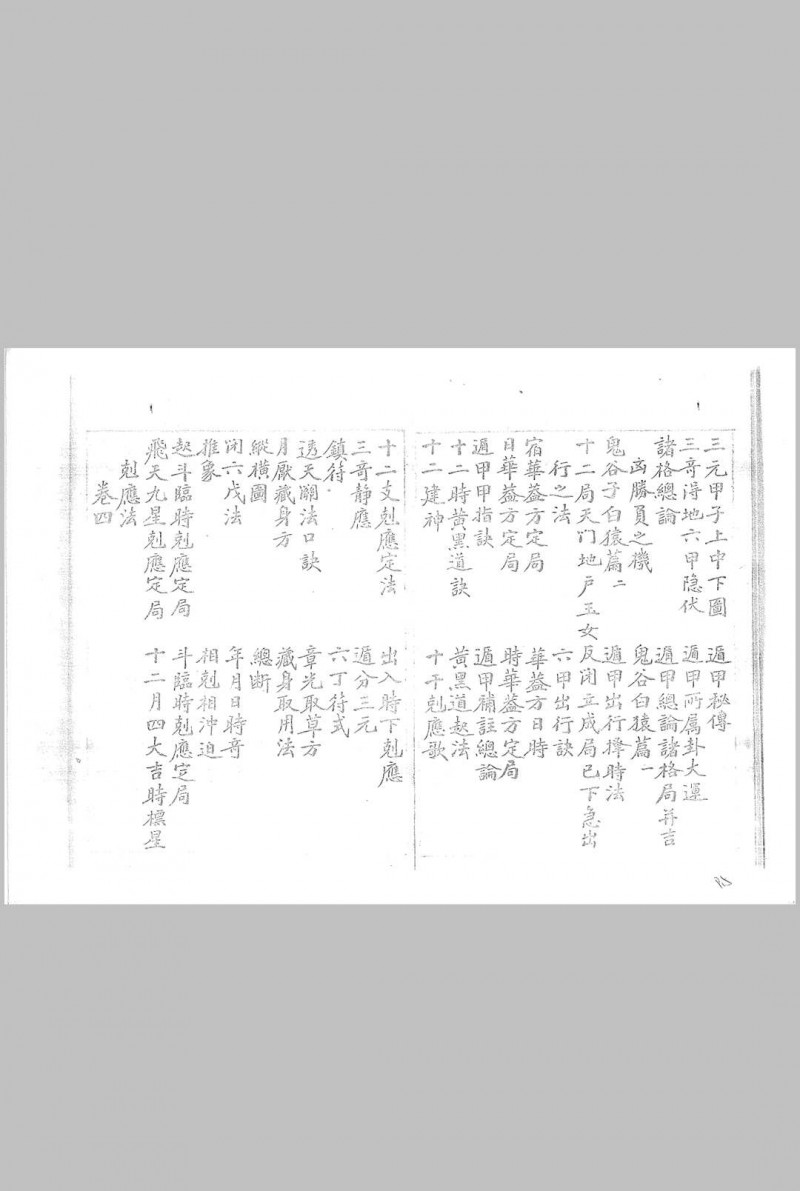 三元甲子上中下圖　遁甲秘傳
三奇淂地六甲隐伏　遁甲所属卦大運
諸格總論　遁甲總論諸格局并吉
凶勝負之機　鬼谷白猿篇一
鬼谷子白猿篇二　遁甲出行擇時法
十二局天门地户玉女反闭立成局已下急出
行之法　六甲出行訣
宿華盖方定局　華盖方日時
日華盖方定局　時華盖方定局
遁甲甲指訣　遁甲補註總論
十二時黄黑道訣　黄黑道起法
十二建神　十干剋應歌
十二支剋應定法　出入時下剋應
三奇静應　遁分三元
鎮符　六丁符式
透天關法口訣　章光取草方
月厭藏身方　藏身取用法
縱横圖　總断
闭六戊法　年月日時奇
推象　相剋相沖迫
起斗臨時剋應定局　斗臨時剋應定局
飛天九星剋應定局　十二月四大吉時標星
剋應法
卷四